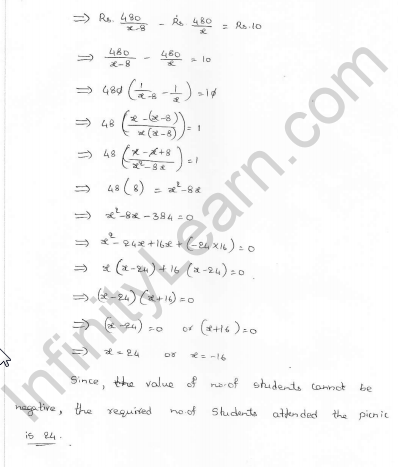 ⇒ Rs. 480/(x-8) - Rs 480/x = Rs.10
⇒ 480/(x-8) - 480/x = 10
⇒ 480 (1/(x-8) - 1/x) = 10
⇒ 48 ((x-(x-8))/(x(x-8))) = 1
⇒ 48 ((x-x+8)/(x²-8x)) = 1
⇒ 48(8) = x²-8x
⇒ x²-8x-384=0
⇒ x²-24x+16x+(-24×16)=0
⇒ x(x-24)+16(x-24)=0
⇒ (x-24)(x+16)=0
⇒ (x-24)=0 or (x+16)=0
⇒ x=24 or x=-16
Since, the value of no.of students cannot be
negative, the required no.of students attended the picnic
is 24.
InfinityLearn.com